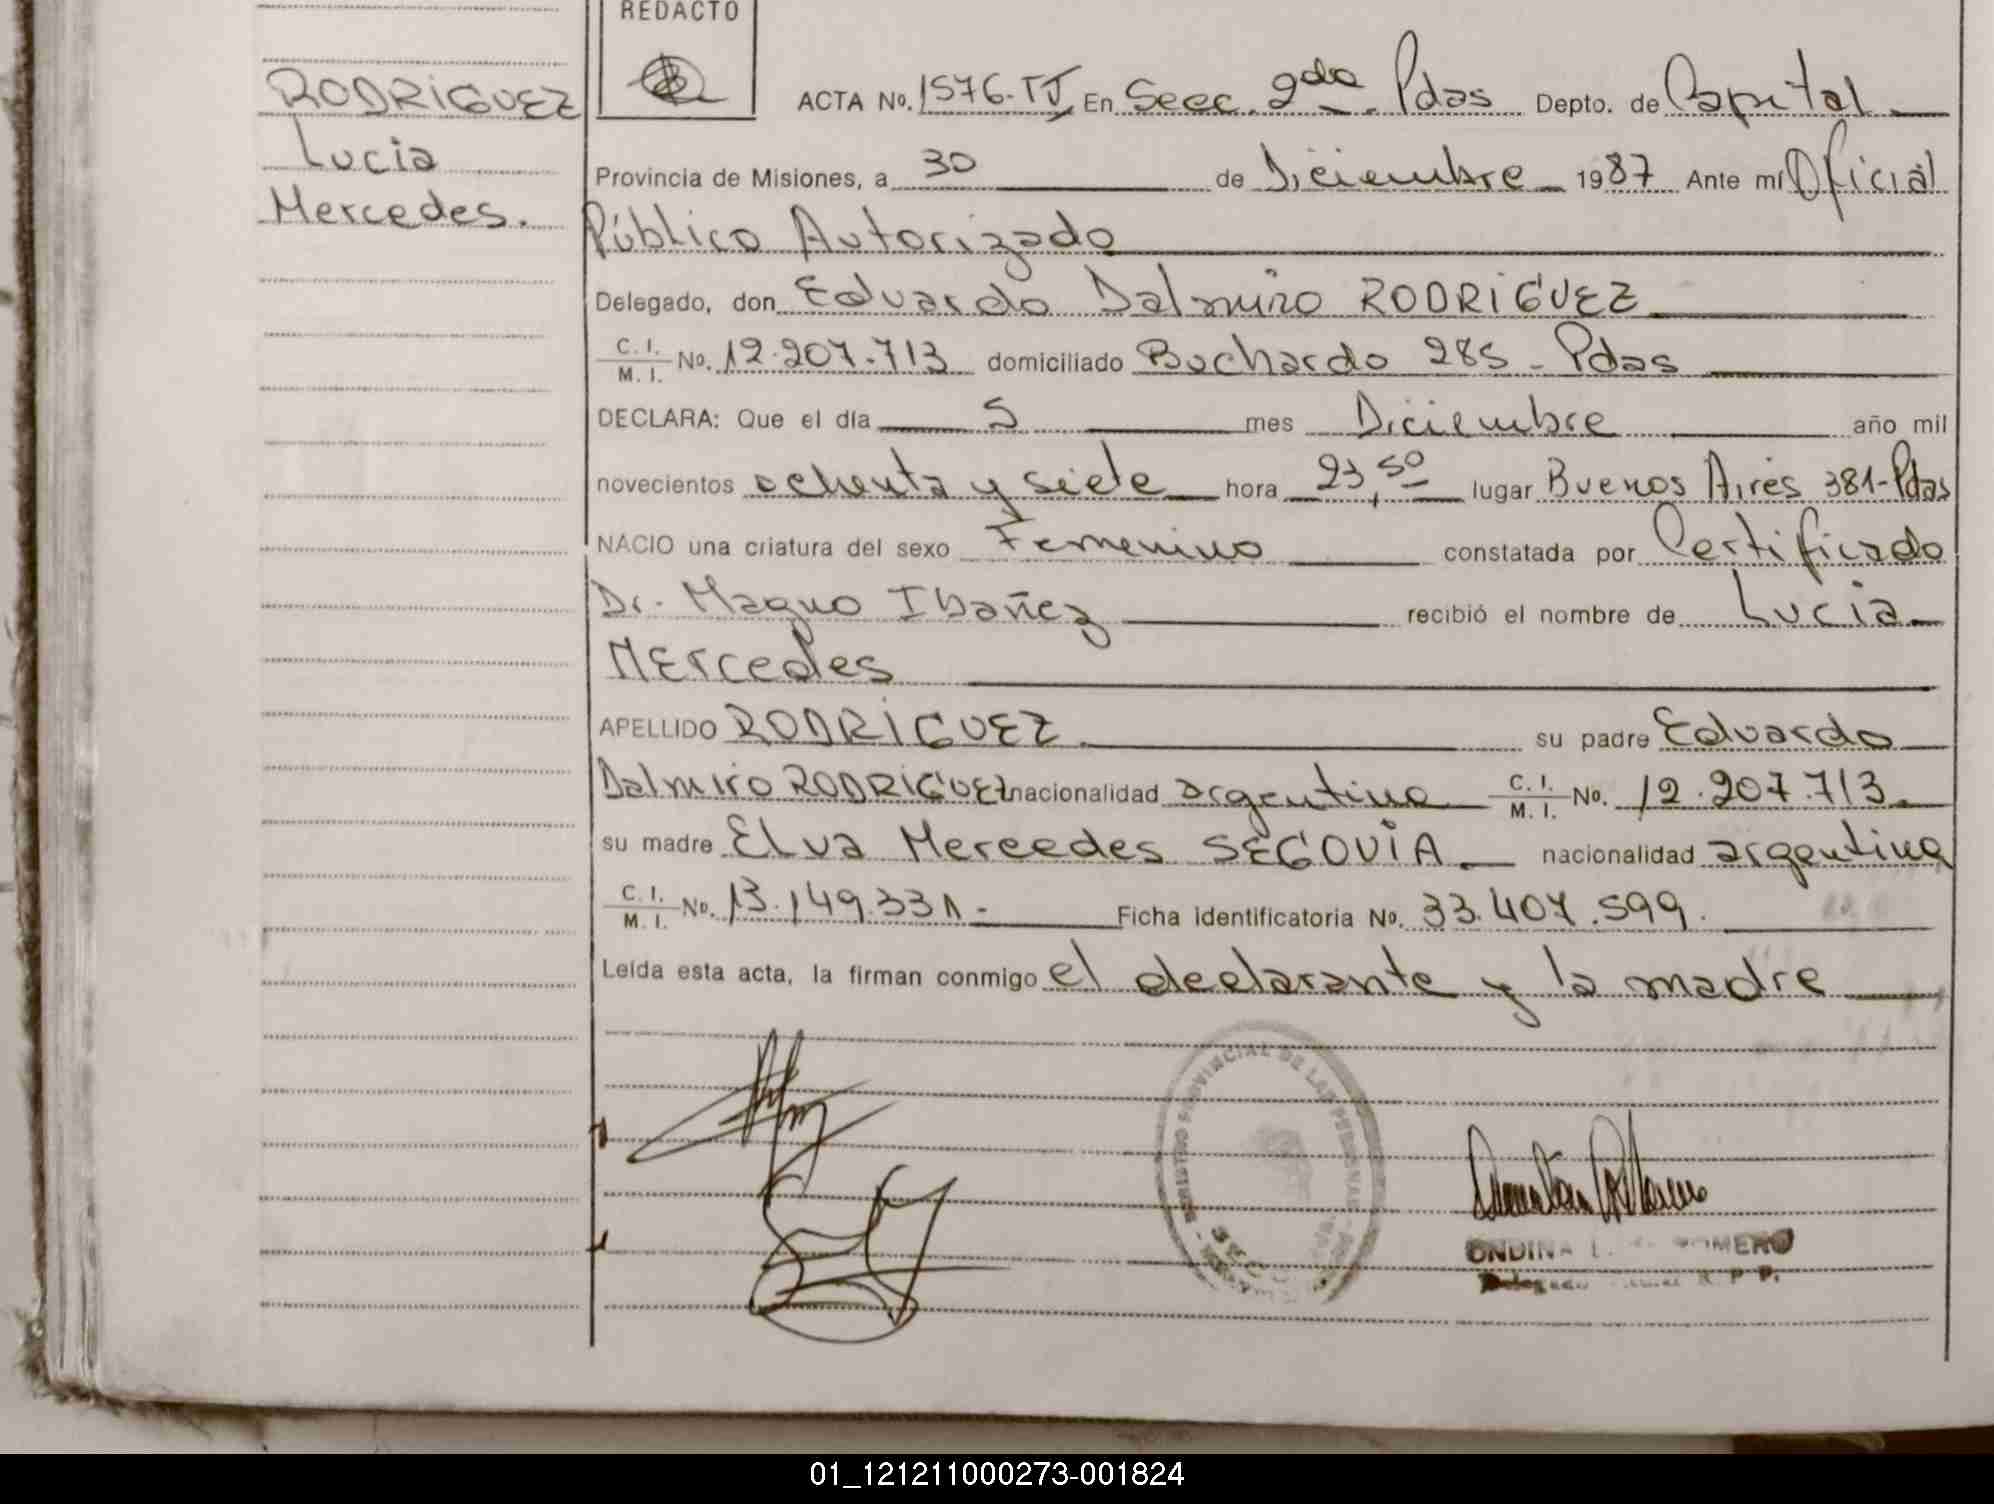 REDACTO
RODRIGUEZ
Lucia
Mercedes.
ACTA No. 1576-TJ En Secc. 2da. Pdas Depto. de Capital
Provincia de Misiones, a 30 de Diciembre 1987 Ante mí Oficial
Público Autorizado
Delegado, don Eduardo Dalmiro RODRIGUEZ
C. I. / M. I. No. 12.207.713 domiciliado Buchardo 285 - Pdas
DECLARA: Que el día 5 mes Diciembre año mil
novecientos ochenta y siete hora 23,50 lugar Buenos Aires 381-Pdas
NACIO una criatura del sexo Femenino constatada por Certificado
Dr. Magno Ibañez recibió el nombre de Lucia
Mercedes
APELLIDO RODRIGUEZ su padre Eduardo
Dalmiro RODRIGUEZ nacionalidad argentina C. I. / M. I. No. 12.207.713.
su madre Elva Mercedes SEGOVIA nacionalidad argentina
C. I. / M. I. No. 13.149.331.- Ficha identificatoria No. 33.407.599.
Leída esta acta, la firman conmigo el declarante y la madre
REGISTRO PROVINCIAL DE LAS PERSONAS
ONDINA ROMERO
01_121211000273-001824